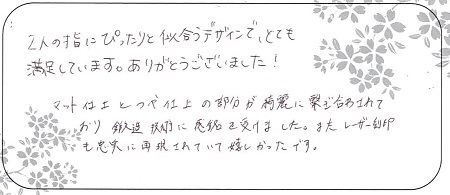 2人の指にぴったりと似合うデザインで、とても
満足しています。ありがとうございました!
マット仕上とつや仕上の部分が綺麗に繋ぎ合わされて
おり鍛造技術に感銘を受けました。また レーザー刻印
も忠実に再現されていて嬉しかったです。